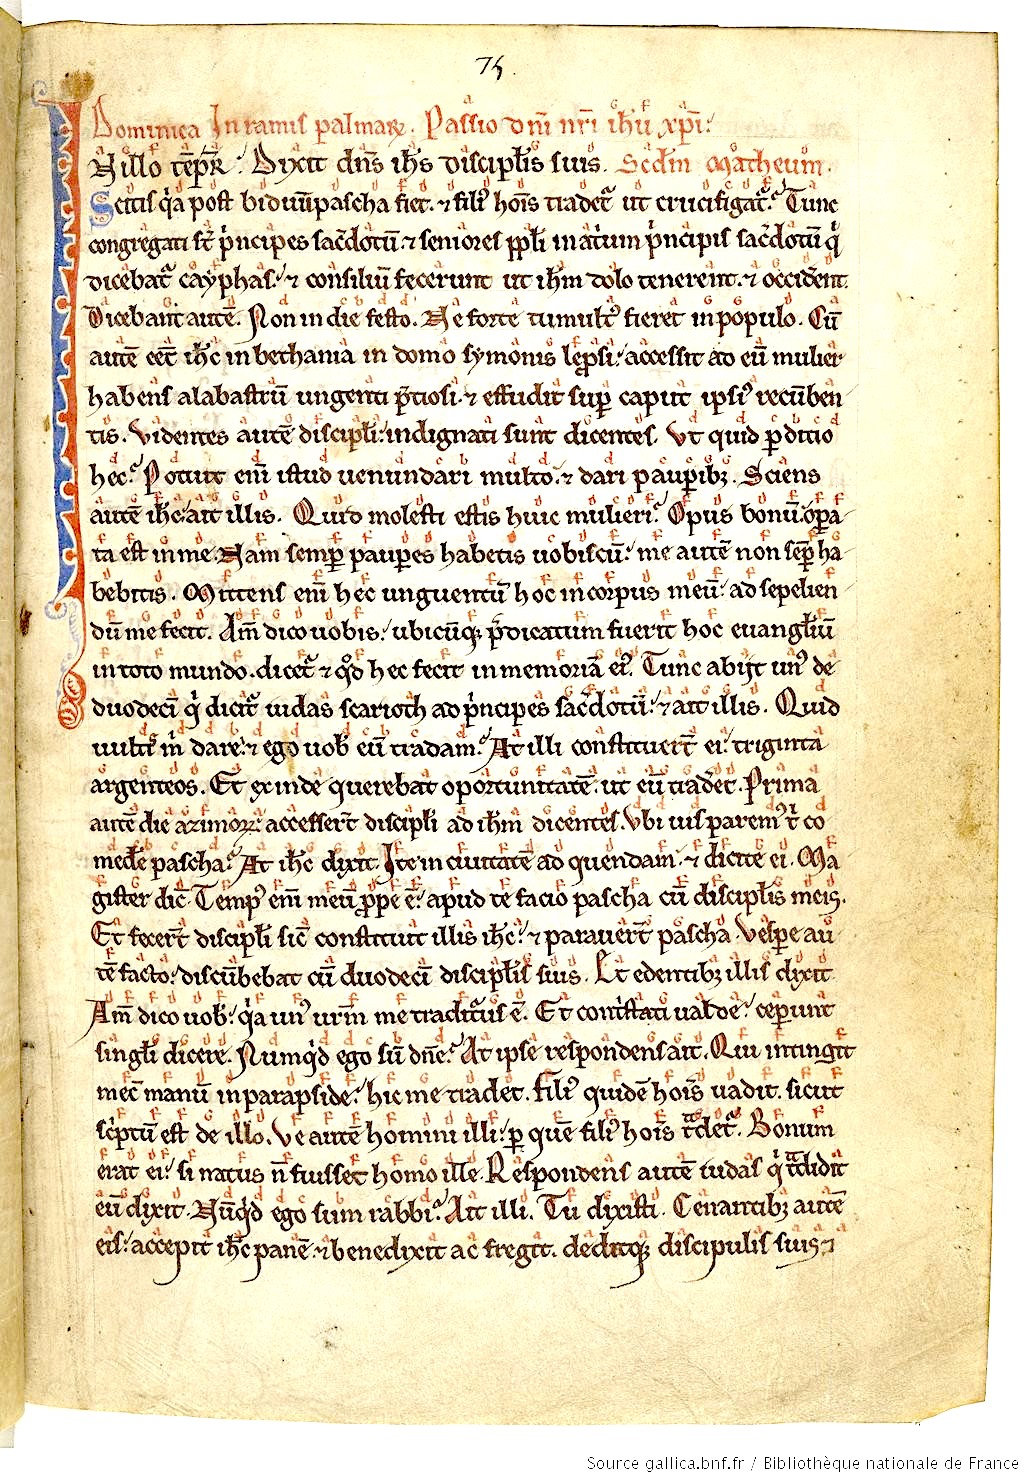 75.
Dominica In ramis palmaꝝ. Passio dn̄i nr̄i ih̄u xp̄i.
In illo tēpr̄. Dixit dn̄s ih̄s discipl̄is suis. Scd̄m Matheum.
Scitis qͥa post biduū pascha fiet. ⁊ filiꝰ hoīs tradet᷑ ut crucifigat᷑. Tunc
congregati st̄ pͥncipes sac̄dotū ⁊ seniores pp̄li in atͥum pͥncipis sac̄dotū qͥ
dicebat᷑ cayphas. ⁊ consiliū fecerunt ut ih̄m dolo tenerent. ⁊ occiderent.
Dicebant autē. Non in die festo. Ne forte tumultꝰ fieret in populo. Cū
autē eēt ih̄c in bethania in domo symonis lep̄si. accessit ad eū mulier
habens alabastrū ungenti p̄tiosi. ⁊ effudit suꝑ caput ipsiꝰ recūben
tis. Videntes autē discipl̄i. indignati sunt dicentes. Ut quid ꝑditio
hec. Potuit enī istud uenundari multo. ⁊ dari pauꝑibꝫ. Sciens
autē ih̄c. ait illis. Quid molesti estis huic mulieri. Opus bonū. oꝑa
ta est in me. Nam semꝑ pauꝑes habetis uobiscū. me autē non seꝑ ha
bebitis. Mittens enī hec unguentū hoc in corpus meū. ad sepelien
dū me fecit. Am̄ dico uobis. ubicūqꝫ p̄dicatum fuerit hoc euangl̄iū
in toto mundo. dicet᷑ ⁊ qd̄ hec fecit in memoriā eiꝰ. Tunc abijt unꝰ de
duodecī qͥ dicit᷑ iudas scarioth ad pͥncipes sac̄dotū. ⁊ ait illis. Quid
uultꝭ m̄ dare. ⁊ ego uob̄ eū tradam. At illi constituert̄ ei. triginta
argenteos. Et exinde querebat oportunitatē. ut eū trad̄et. Prima
autē die azimoꝝ. accessert̄ discipl̄i ad ih̄m dicentes. Ubi uis paremꝰ tͥ co
med̄e pascha. At ih̄c dixit. Ite in ciuitatē ad quendam. ⁊ dicite ei. Ma
gister dic̄. Tempꝰ enī meū ꝓpe ē. apud te facio pascha cū discipl̄is meis.
Et fecert̄ discipl̄i sic̄ constituit illis ih̄c. ⁊ parauert̄ pascha. Vesꝑe au
tē facto. discūbebat cū duodecī discipl̄is suis. Et edentibꝫ illis dixit.
Am̄ dico uob̄. qͥa unꝰ ur̄m me traditurus ē. Et contͥstati ualde. ceꝑunt
singl̄i dicere. Numqͥd ego sū dn̄e. At ipse respondens ait. Qui intingit
mec̄ manū in parapside. hic me tradet. Filiꝰ quidē hoīs uadit. sicut
scͥptū est de illo. Ve autē homini illi. ꝑ quē filiꝰ hoīs tͣdet᷑. Bonum
erat ei. si natus n̄ fuisset homo ille. Respondens autē iudas qͥ tͣdidit
eū dixit. Nūqͥd ego sum rabbi. Ait illi. Tu dixisti. Cenantibꝫ autē
eis. accepit ih̄c panē. ⁊ benedixit ac fregit. deditqꝫ discipulis suis ⁊
Source gallica.bnf.fr / Bibliothèque nationale de France